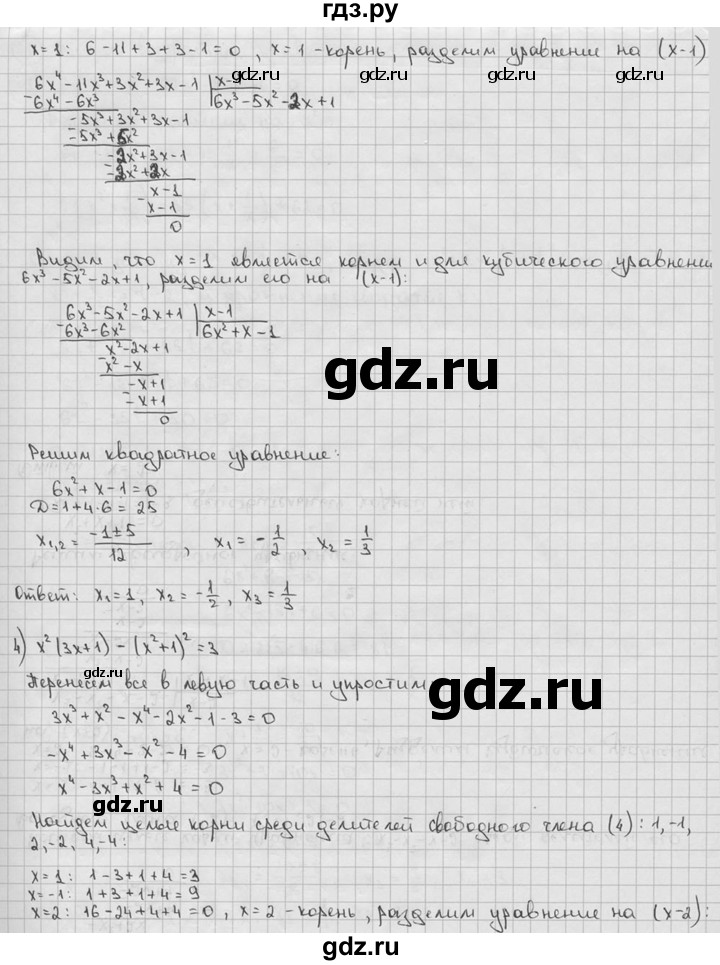 гдз.ру
x=1: 6-11+3+3-1=0, x=1 - корень, разделим уравнение на (x-1)
gdz.ru gdz.ru gdz.ru
6x⁴-11x³+3x²+3x-1 | x-1
-6x⁴-6x³ 6x³-5x²-2x+1
-5x³+3x²+3x-1
-5x³+5x²
-2x²+3x-1
-2x²+2x
gdz.ru gdz.ru
x-1
x-1
0
Видим, что x=1 является корнем и для кубического уравнения
6x³-5x²-2x+1, разделим его на (x-1):
gdz.ru gdz.ru
6x³-5x²-2x+1 | x-1
-6x³-6x² 6x²+x-1
x²-2x+1
x²-x
gdz.ru
-x+1
-x+1
0
Решим квадратное уравнение:
gdz.ru gdz.ru
6x²+x-1=0
D=1+4·6=25
x₁,₂ = -1±5/12, x₁=-1/2, x₂=1/3
gdz.ru gdz.ru
Ответ: x₁=1, x₂=-1/2, x₃=1/3
4) x²(3x+1)-(x²+1)²=3
gdz.ru
Перенесем все в левую часть и упростим
3x³+x²-x⁴-2x²-1-3=0
gdz.ru
-x⁴+3x³-x²-4=0
x⁴-3x³+x²+4=0
gdz.ru
Найдем целые корни среди делителей свободного члена (4): 1,-1,
2,-2, 4,-4:
x=1: 1-3+1+4=3
gdz.ru gdz.ru
x=-1: 1+3+1+4=9
x=2: 16-24+4+4=0, x=2 - корень, разделим уравнение на (x-2):
gdz.ru